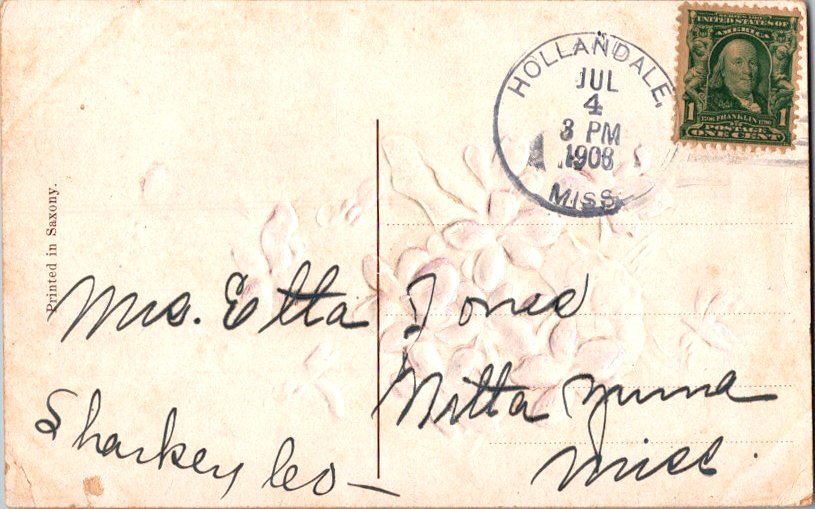 HOLLANDALE,
JUL
4
3 PM
1908
MISS.
UNITED STATES OF
AMERICA
1 1
FRANKLIN
POSTAGE
ONE CENT
Printed in Saxony.
Mrs. Etta Jones
Nitta Yuma
Sharkey Co—
Miss.